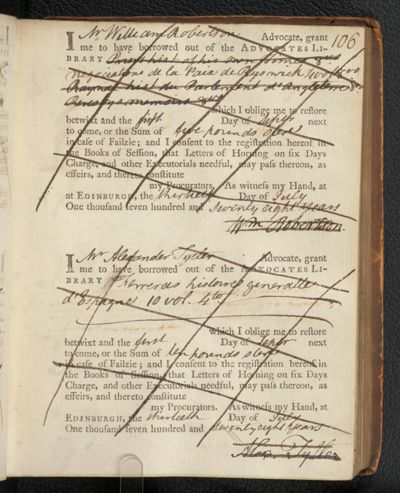 106
I Mr William Robertson Advocate, grant
me to have borrowed out of the ADVOCATES LI-
BRARY hist of his own
Negociations de la Paix de Ryswick
Raynal hist du Parlement d'Angleterre
memoirs
which I oblige me to restore
betwixt and the first Day of Septr next
to come, or the Sum of five pounds sterl
in case of Failzie; and I consent to the registration hereof in
the Books of Session, that Letters of Horning on six Days
Charge, and other Executorials needful, may pass thereon, as
effeirs, and thereto constitute
my Procurators. As witness my Hand, at
at EDINBURGH, the thertieth Day of July
One thousand seven hundred and Seventy eight years
Wm Robertson
I Mr Alexander Tytler Advocate, grant
me to have borrowed out of the ADVOCATES LI-
BRARY Herreras histoire generalle
d'Espagne 10 vol. 4to
which I oblige me to restore
betwixt and the first Day of Septr next
to come, or the Sum of ten pounds sterl
in case of Failzie; and I consent to the registration hereof in
the Books of Session, that Letters of Horning on six Days
Charge, and other Executorials needful, may pass thereon, as
effeirs, and thereto constitute
my Procurators. As witness my Hand, at
EDINBURGH, the thirtieth Day of July
One thousand seven hundred and Seventy eight years
Alexr Tytler